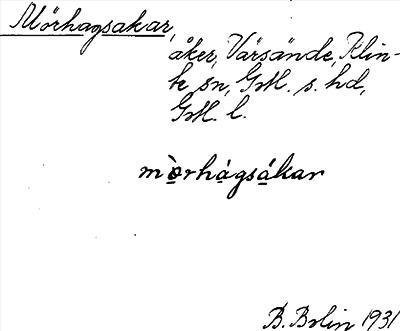 Mörhagsakar,
åker, Värsände, Klin-
te sn, Gotl. s. hd,
Gotl. l.
mòrhágsákar
B. Bolin 1931